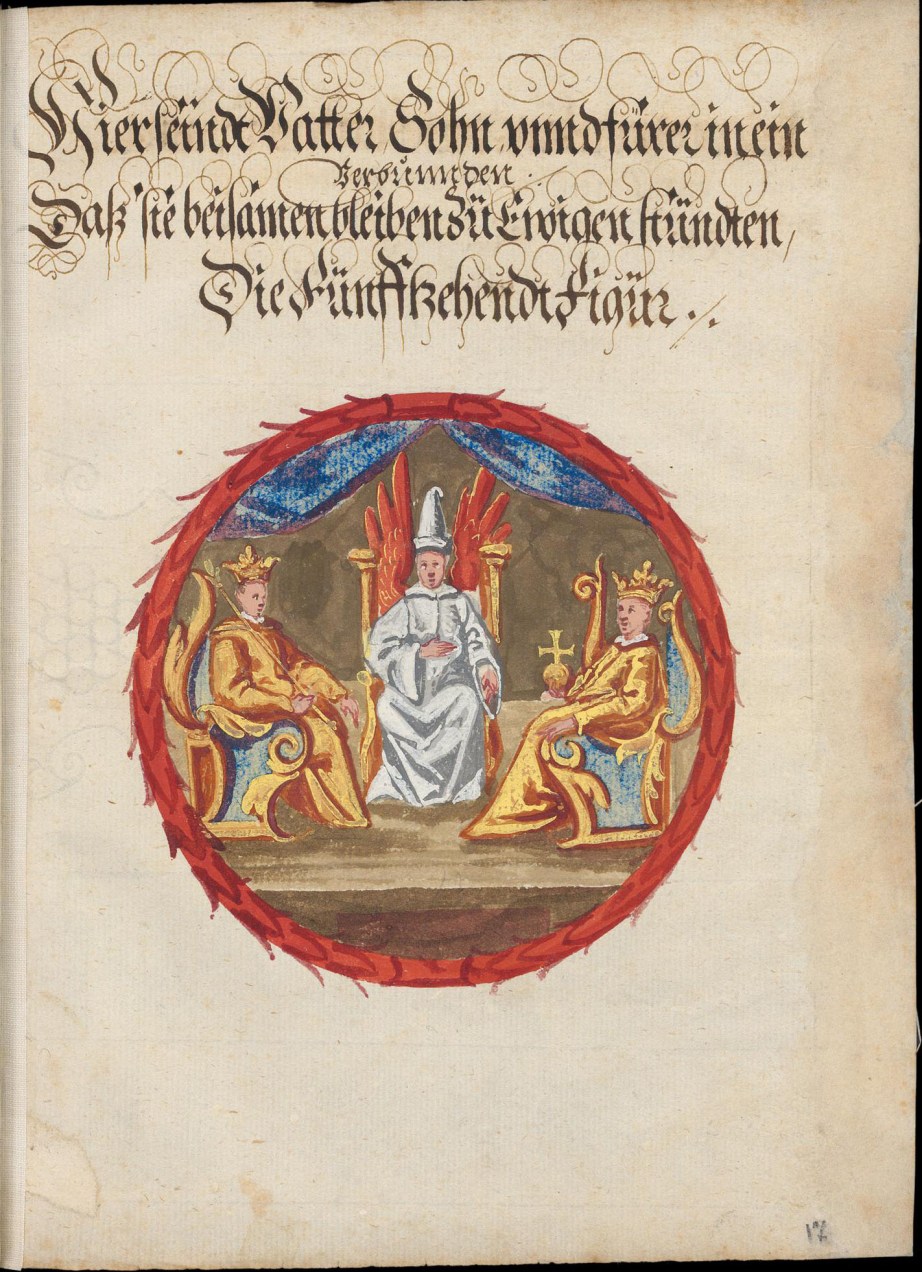 Hier seindt Vatter, Sohn, vnnd fürer in ein
Verbunnden
Daß sie beisamen bleiben zü Ewigen stündten,
Die Fünfftzehendt Figür ./.
17